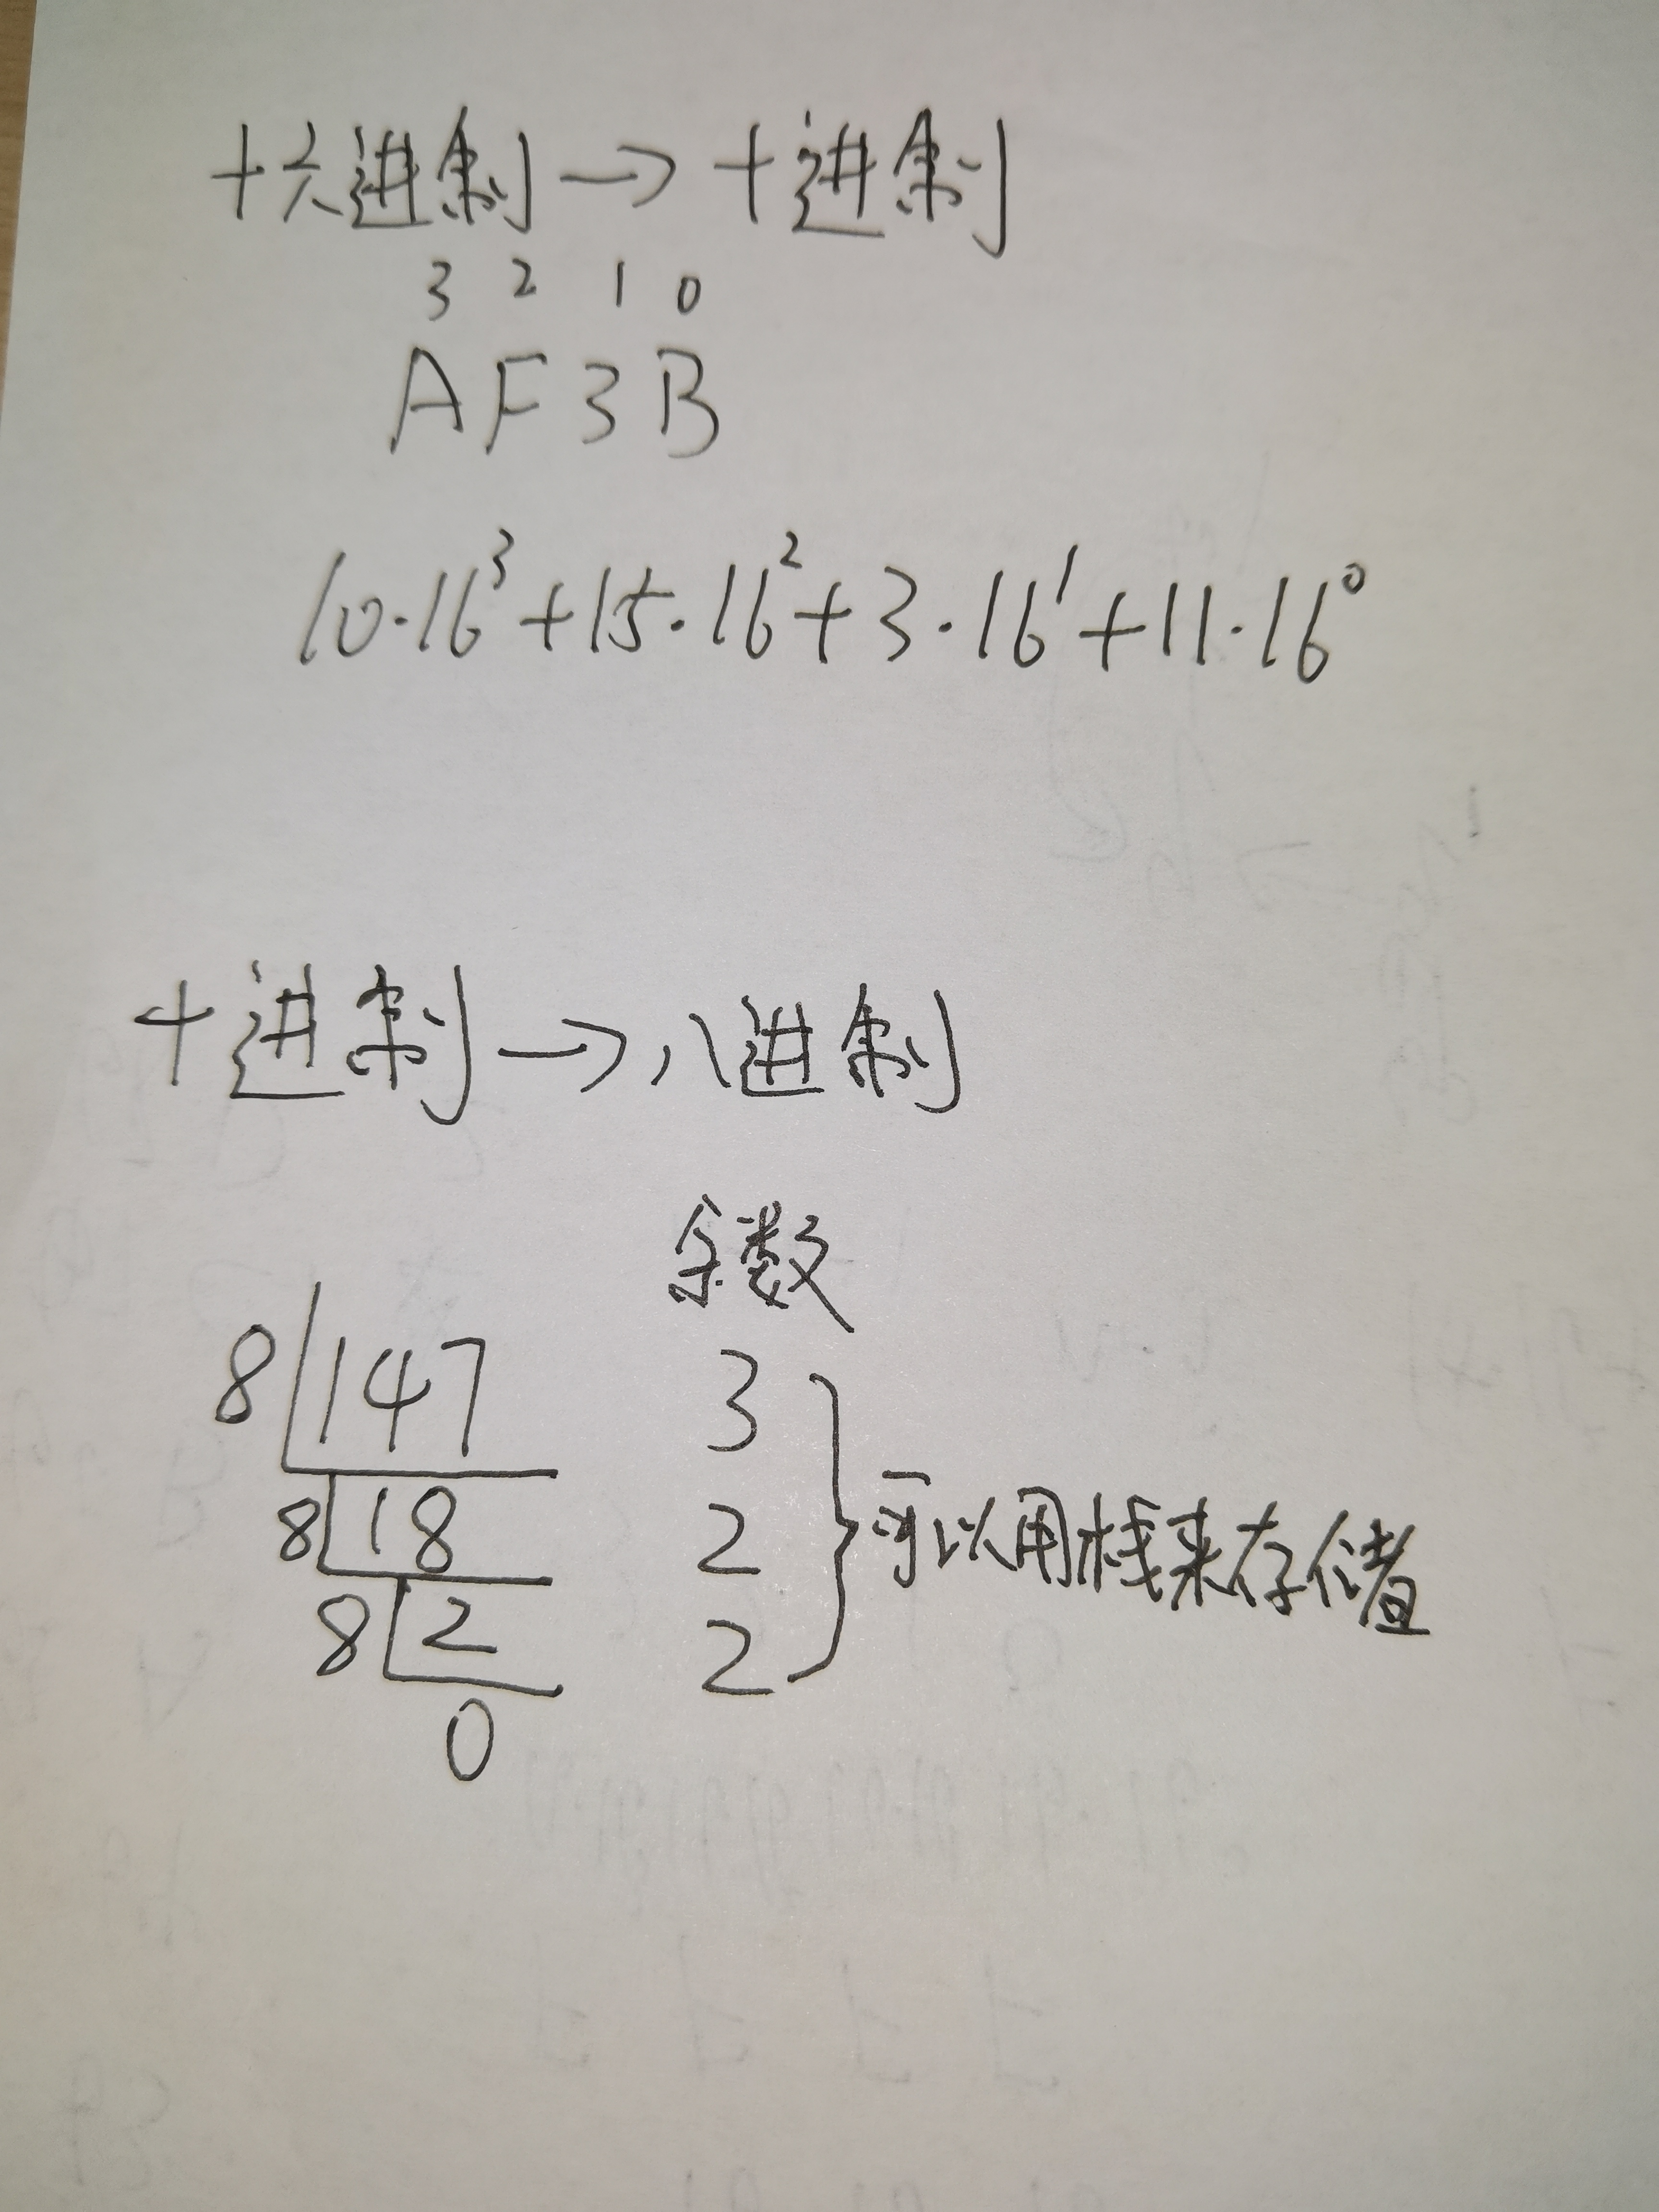 十六进制→十进制
3 2 1 0
A F 3 B
10·16³+15·16²+3·16¹+11·16⁰
十进制→八进制
余数
8 147 3
8 18 2 可以用栈来存储
8 2 2
0